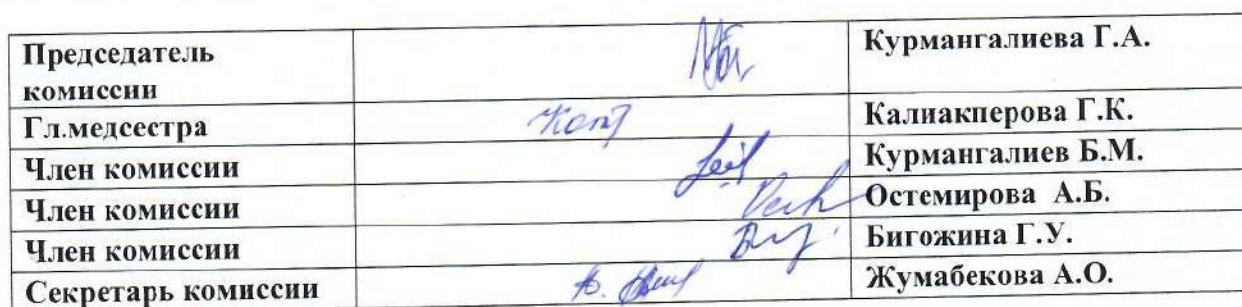 Председатель Курмангалиева Г.А.
комиссии
Гл.медсестра Калиакперова Г.К.
Член комиссии Курмангалиев Б.М.
Член комиссии Остемирова А.Б.
Член комиссии Бигожина Г.У.
Секретарь комиссии Жумабекова А.О.